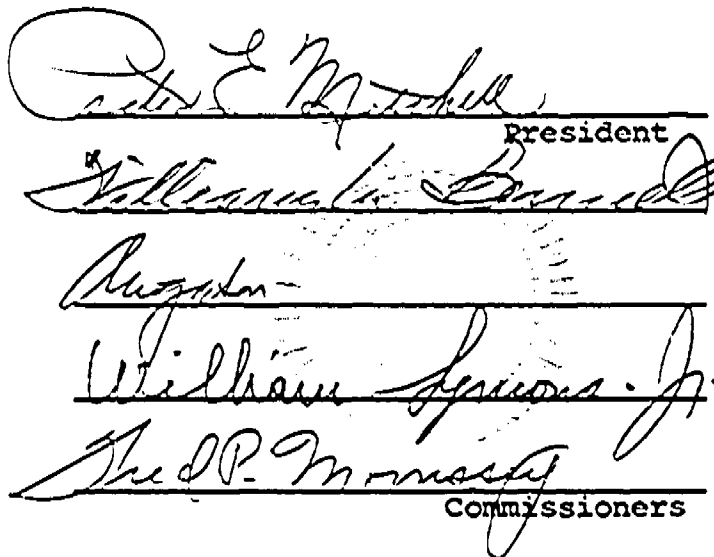 Peter E Mitchell
President
William M. Bennett
August
William Symons. Jr.
Fred P. Morrissey
Commissioners